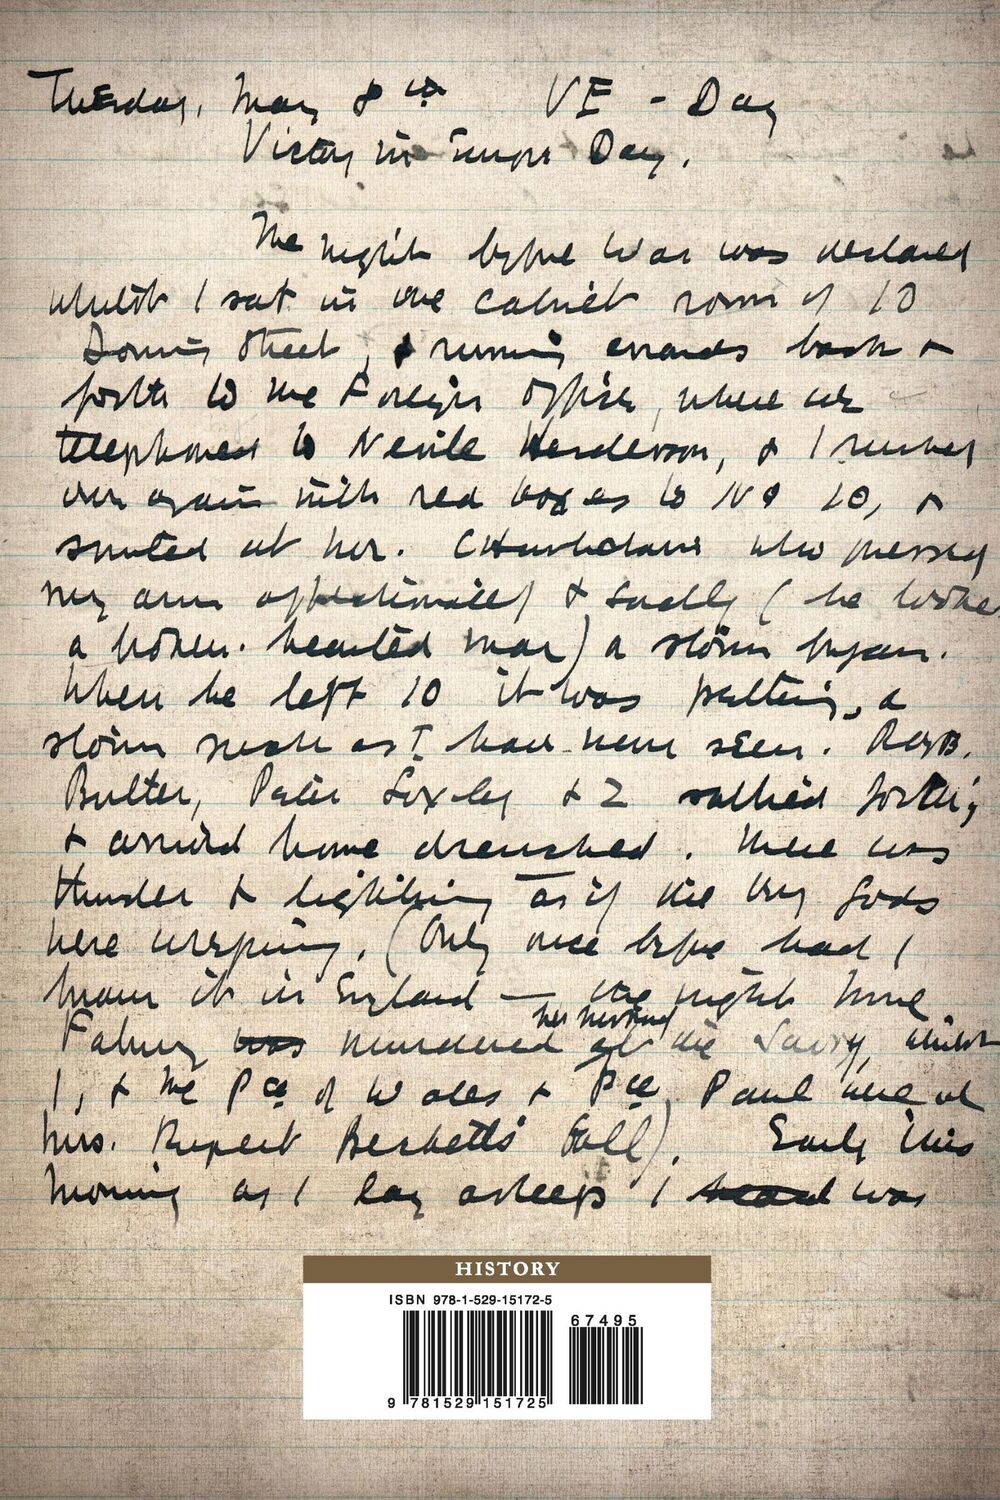 Tuesday, May 8th VE - Day
Victory in Europe Day.
The night before War was declared
whilst I sat in the cabinet room of 10
Downing Street, & running errands back &
forth to the Foreign Office, where we
telephoned to Nevile Henderson, & I rushed
over again with red boxes to No 10, &
smiled at Mr. Chamberlain who pressed
my arm affectionately & sadly (he looked
a broken-hearted man) a storm began.
When he left 10 it was pelting, a
storm such as I have never seen. Rab
Butler, Peter Loxley & I sallied forth,
& arrived home drenched. There was
thunder & lightning as if the very gods
were weeping. (Only once before had I
known it in England — the night Mme
Fahmy was murdered her husband at the Savoy, whilst
I, & the Pce of Wales & Pce Paul were at
Mrs. Rupert Becketts' Ball). Early this
morning as I lay asleep I was
HISTORY
ISBN 978-1-529-15172-5
67495
9 781529 151725